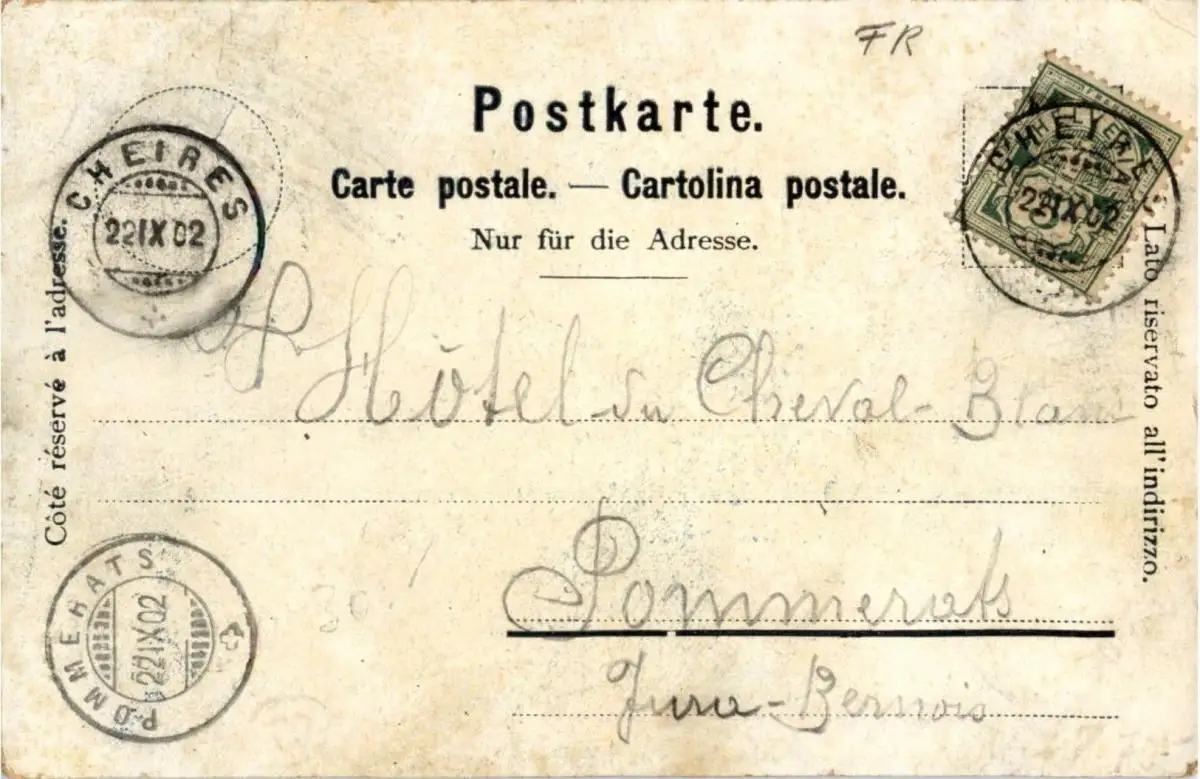 FR
Postkarte.
Carte postale. — Cartolina postale.
Nur für die Adresse.
CHEIRES
22 IX 02
22 IX 02
Côté réservé à l'adresse.
Lato riservato all'indirizzo.
Hôtel du Cheval-Blanc
Pommerats
Jura-Bernois
POMMERATS
22 IX 02
30